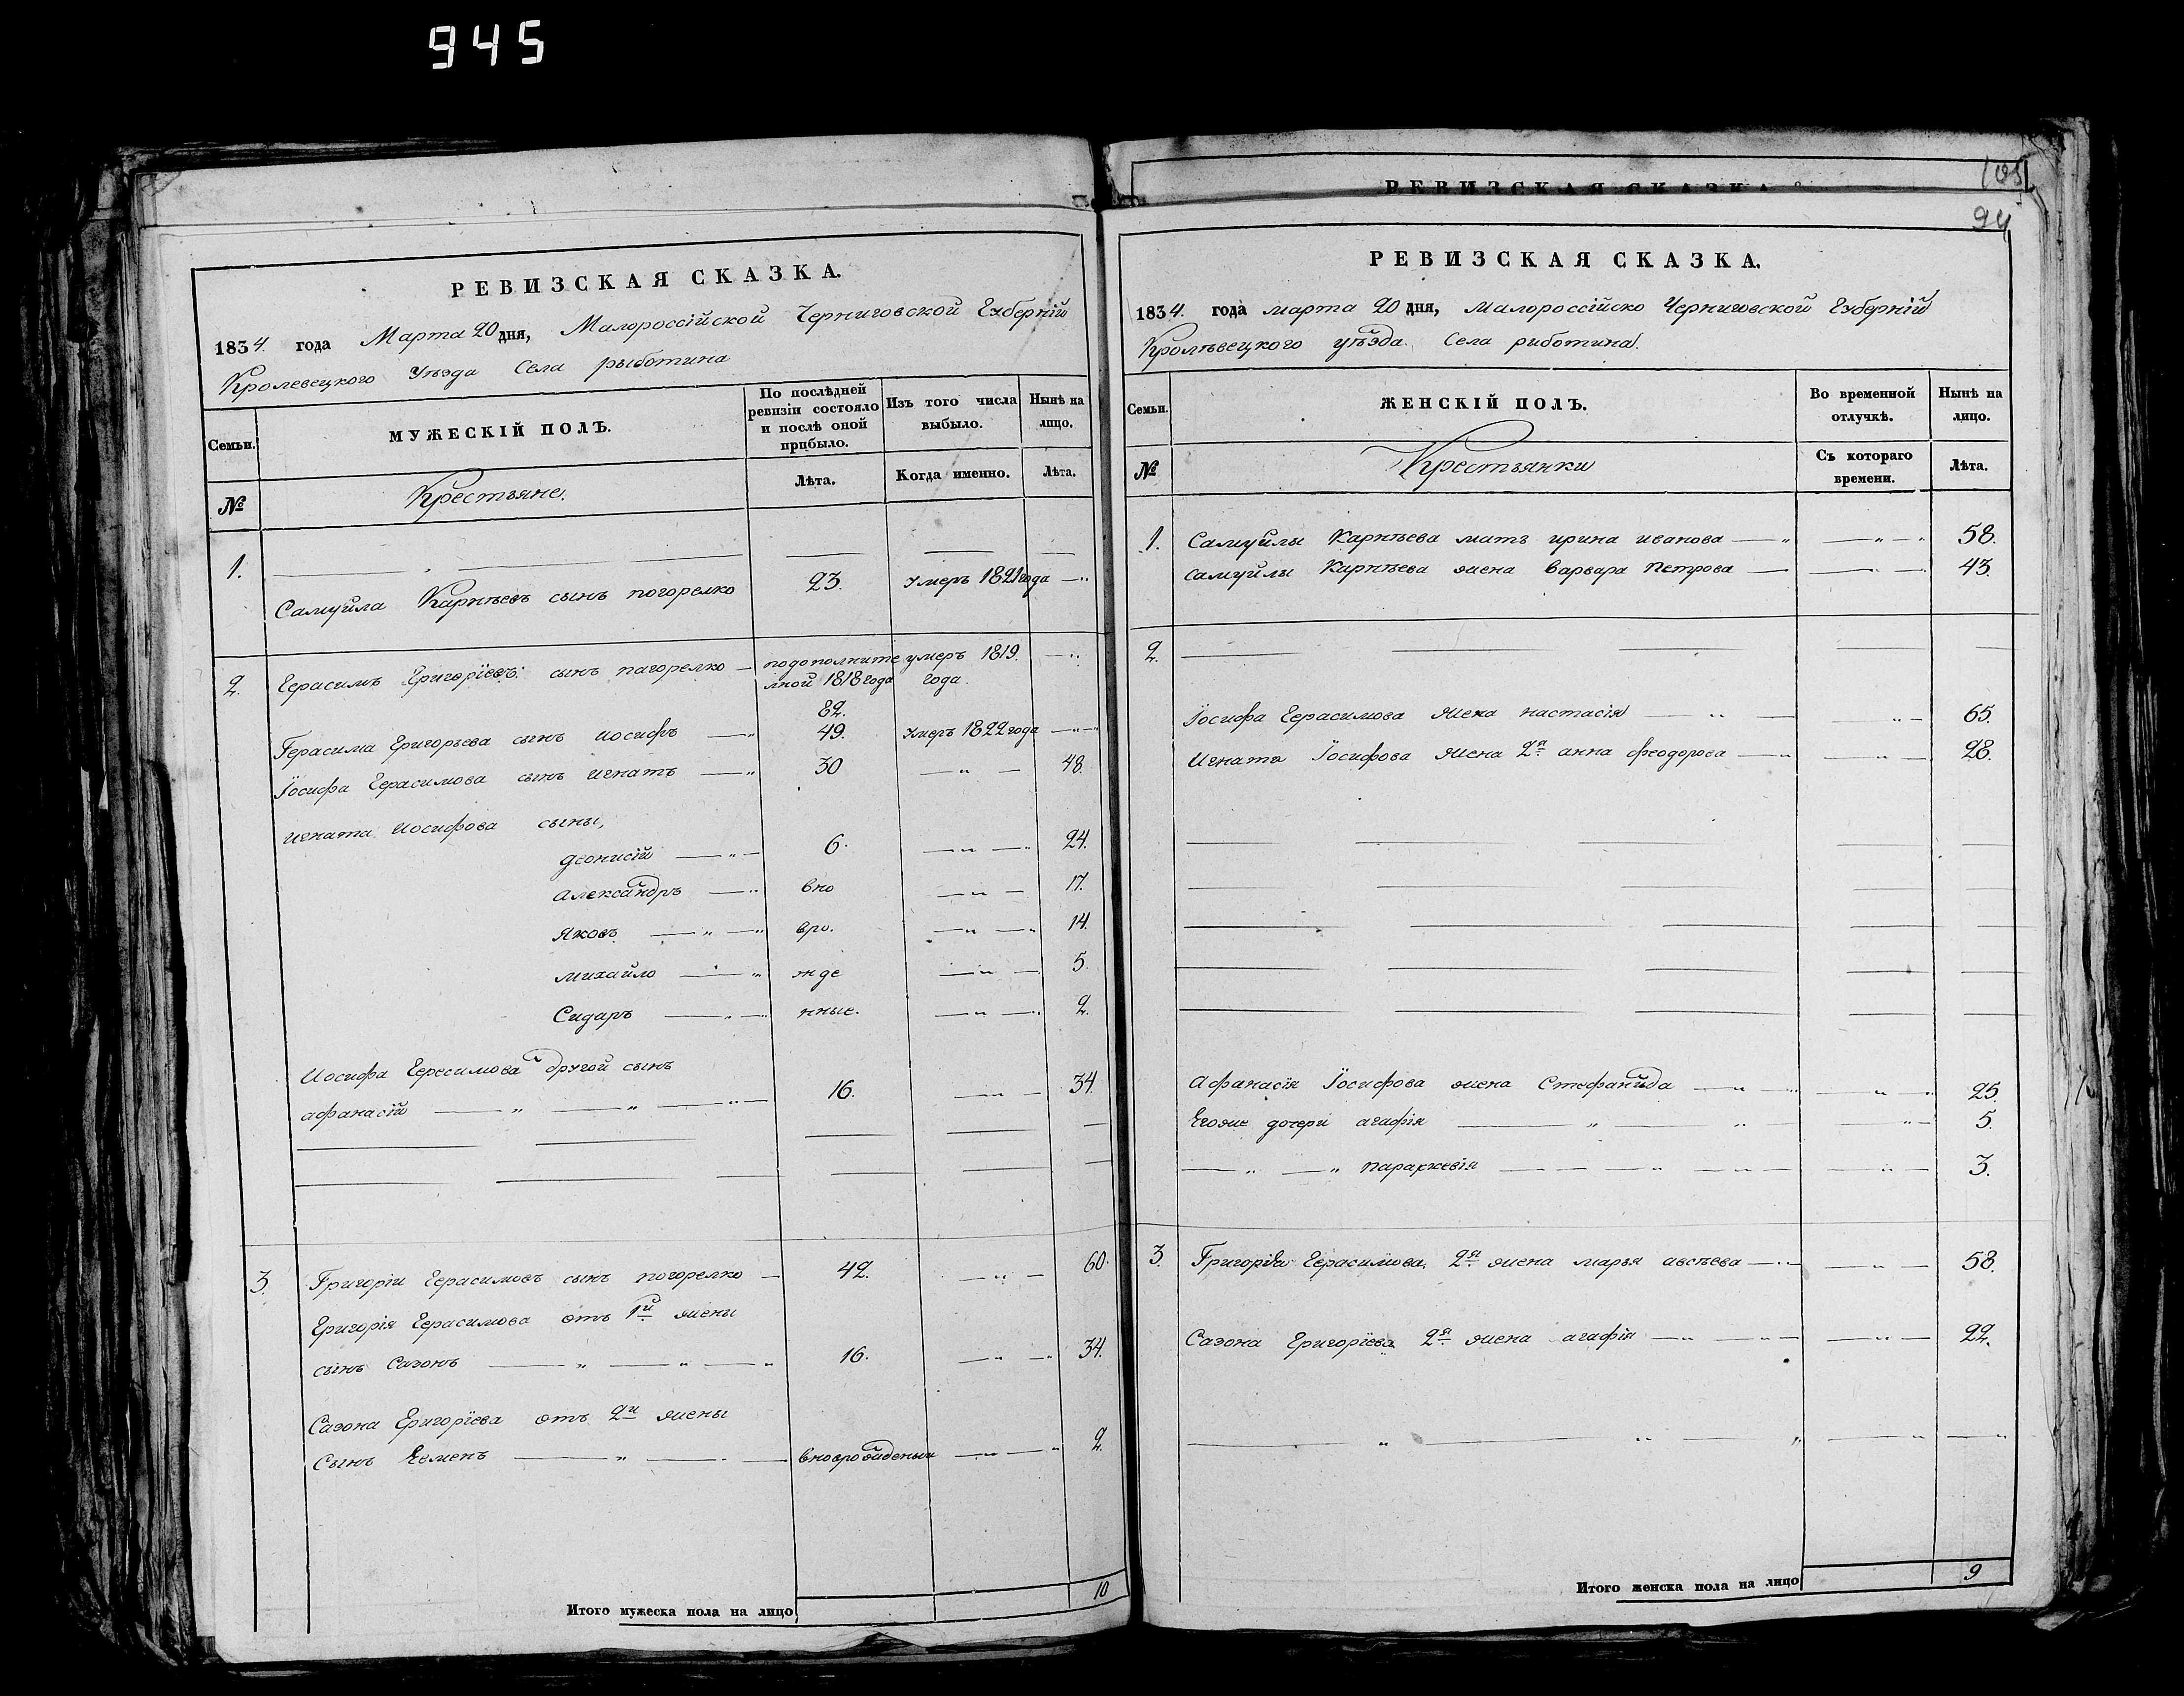 945
РЕВИЗСКАЯ СКАЗКА.
1834. года Марта 20 дня, Малороссійской Черниговской Губерніи
Кролевецкого Уѣзда Села рыботина
Семьи. МУЖЕСКІЙ ПОЛЪ. По послѣдней ревизіи состояло и послѣ оной прибыло. Изъ того числа выбыло. Нынѣ на лицо.
№ Крестьяне. Лѣта. Когда именно. Лѣта.
1.
Самуйла Карнѣевъ сынъ погорелко 23. умеръ 1821 года
2. Герасимъ Григорїевъ сынъ пагорелко подополните умеръ 1819.
лной 1818 года года.
82.
Герасима Григорьева сынъ иосифъ 49. умеръ 1822 года
Їосифа Герасимова сынъ игнатъ 30 48.
игната иосифова сыны,
деонисій 6. 24.
александръ вно 17.
яковъ вро. 14.
михайло жде 5.
Сидаръ нные. 2.
Иосифа Герссимова другой сынъ
афанасій 16. 34
3. Григоріи Герасимовъ сынъ погорелко 42. 60.
Григорія Герасимова отъ 1й жены
сынъ Сазонъ 16. 34.
Сазона Григорїева отъ 2й жены
Сынъ Семенъ вновро жденый 2.
Итого мужеска пола на лицо 10
РЕВИЗСКАЯ СКАЗКА.
105
94
РЕВИЗСКАЯ СКАЗКА.
1834. года марта 20 дня, Малороссійско Черниговской Губерніи
Кролѣвецкого уѣзда. Села риботина.
Семьи. ЖЕНСКІЙ ПОЛЪ. Во временной отлучкѣ. Нынѣ на лицо.
№ Крестьянки Съ котораго времени. Лѣта.
1. Самуйлы Карнѣева мать ирина иванова 58.
самуйлы Карнѣева жена варвара Петрова 43.
2.
Їосифа Герасимова жена настасія 65.
Игната Їосифова жена 2я анна феодорова 28.
Афанасія Їосифова жена Стефанида 25.
Егоже дочери агафія 5.
параркевія 3.
3. Григорїя Герасимова 2я жена марья авсѣева 58.
Сазона Григорїева 2я жена агафія 22.
Итого женска пола на лицо 9